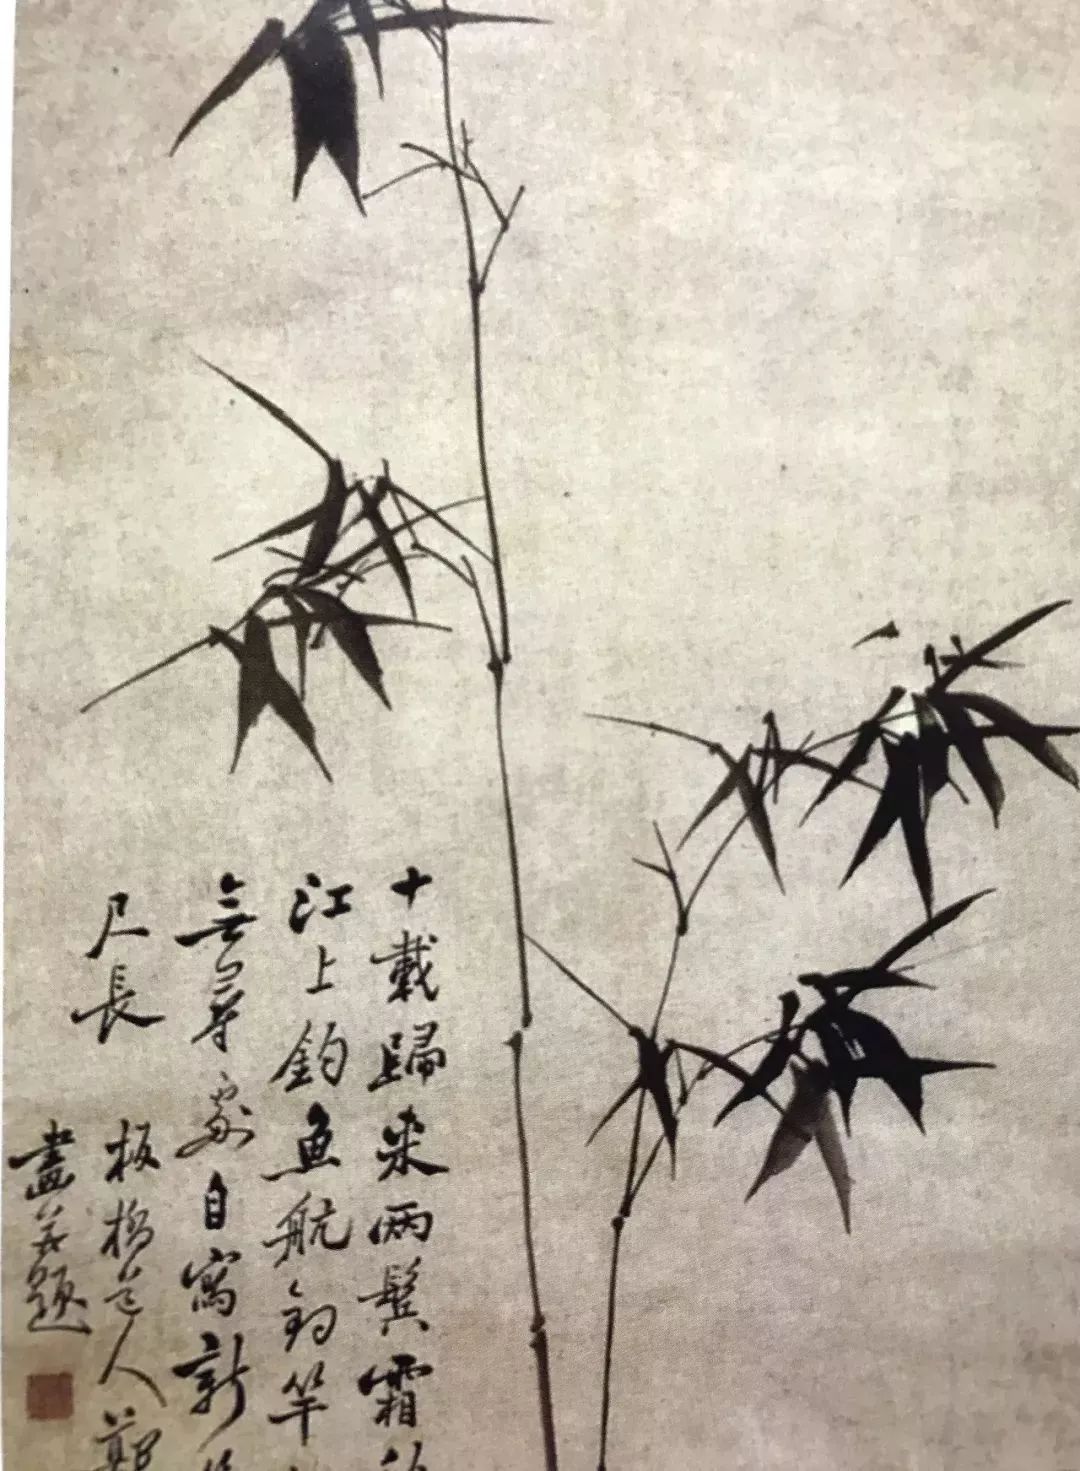 十載歸來兩鬢霜
江上釣魚航釣竿
無尋處自寫新
尺長
板橋道人鄭
畫并題